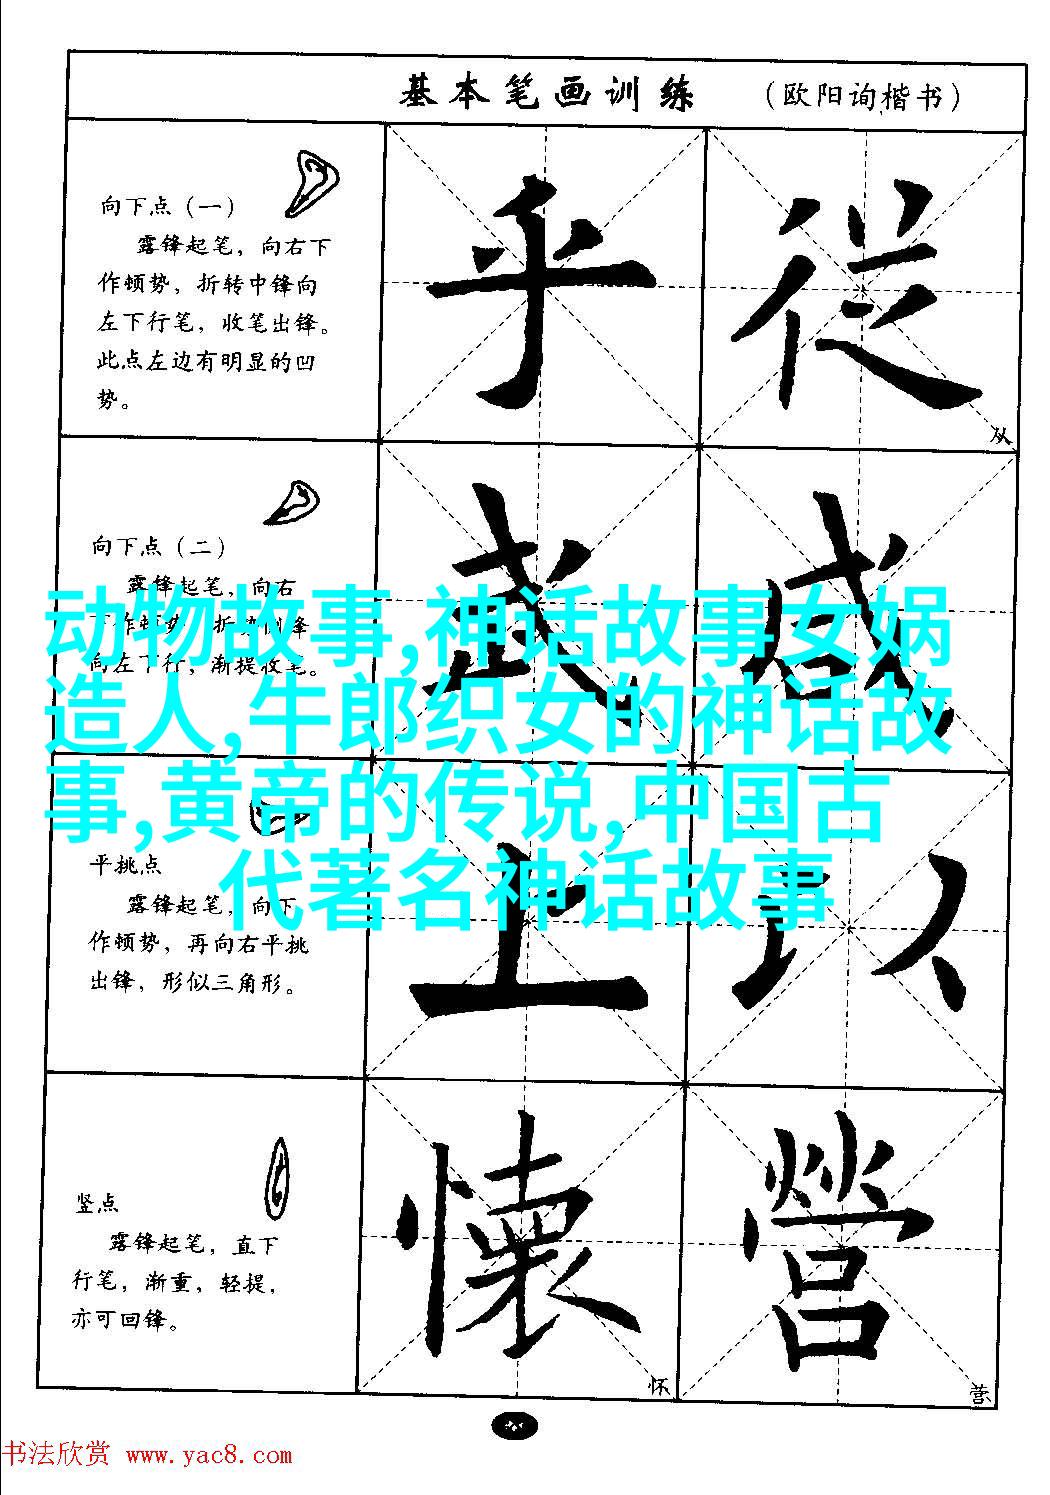 基本笔画训练 （欧阳询楷书）
向下点（一）
露锋起笔，向右下
作顿势，折转中锋向
左下行笔，收笔出锋。
此点左边有明显的凹
势。
乎 從
从
向下点（二）
露锋起笔，向右
下作顿势，折势侧锋
向左下行，渐提收笔。
武 咸
动物故事,神话故事女娲
造人,牛郎织女的神话故
事,黄帝的传说,中国古
代著名神话故事
平挑点
露锋起笔，向下
作顿势，再向右平挑
出锋，形似三角形。
上 以
竖点
露锋起笔，直下
行笔，渐重，轻提，
亦可回锋。
懷 營
怀 营
书法欣赏 www.yac8.com